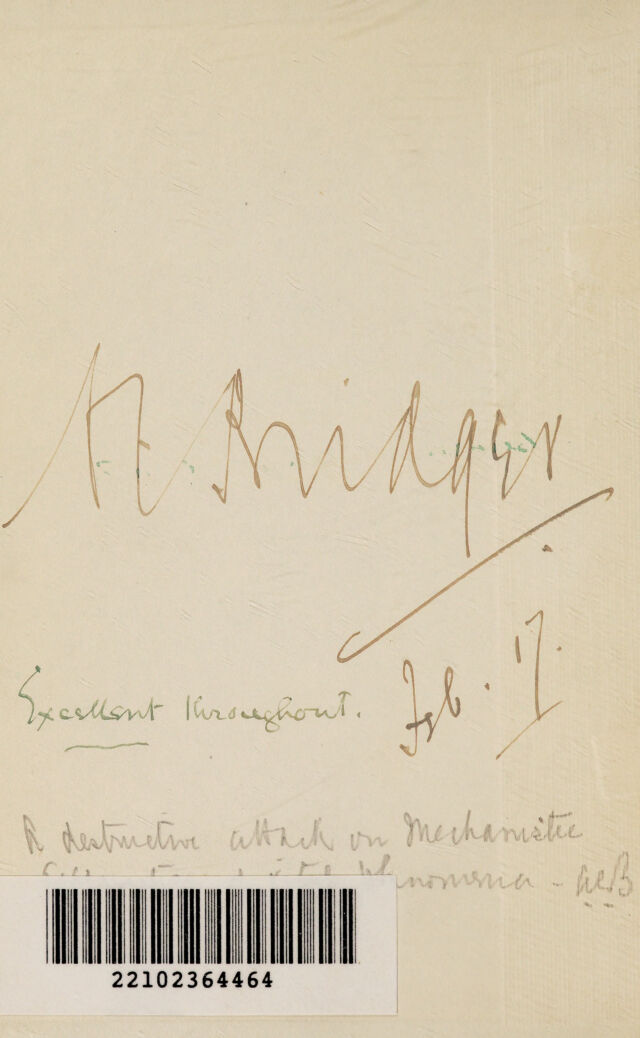 Bridger
Feb. 17.
Excellent throughout.
A destructive attack on Mechanistic
phenomena -
22102364464